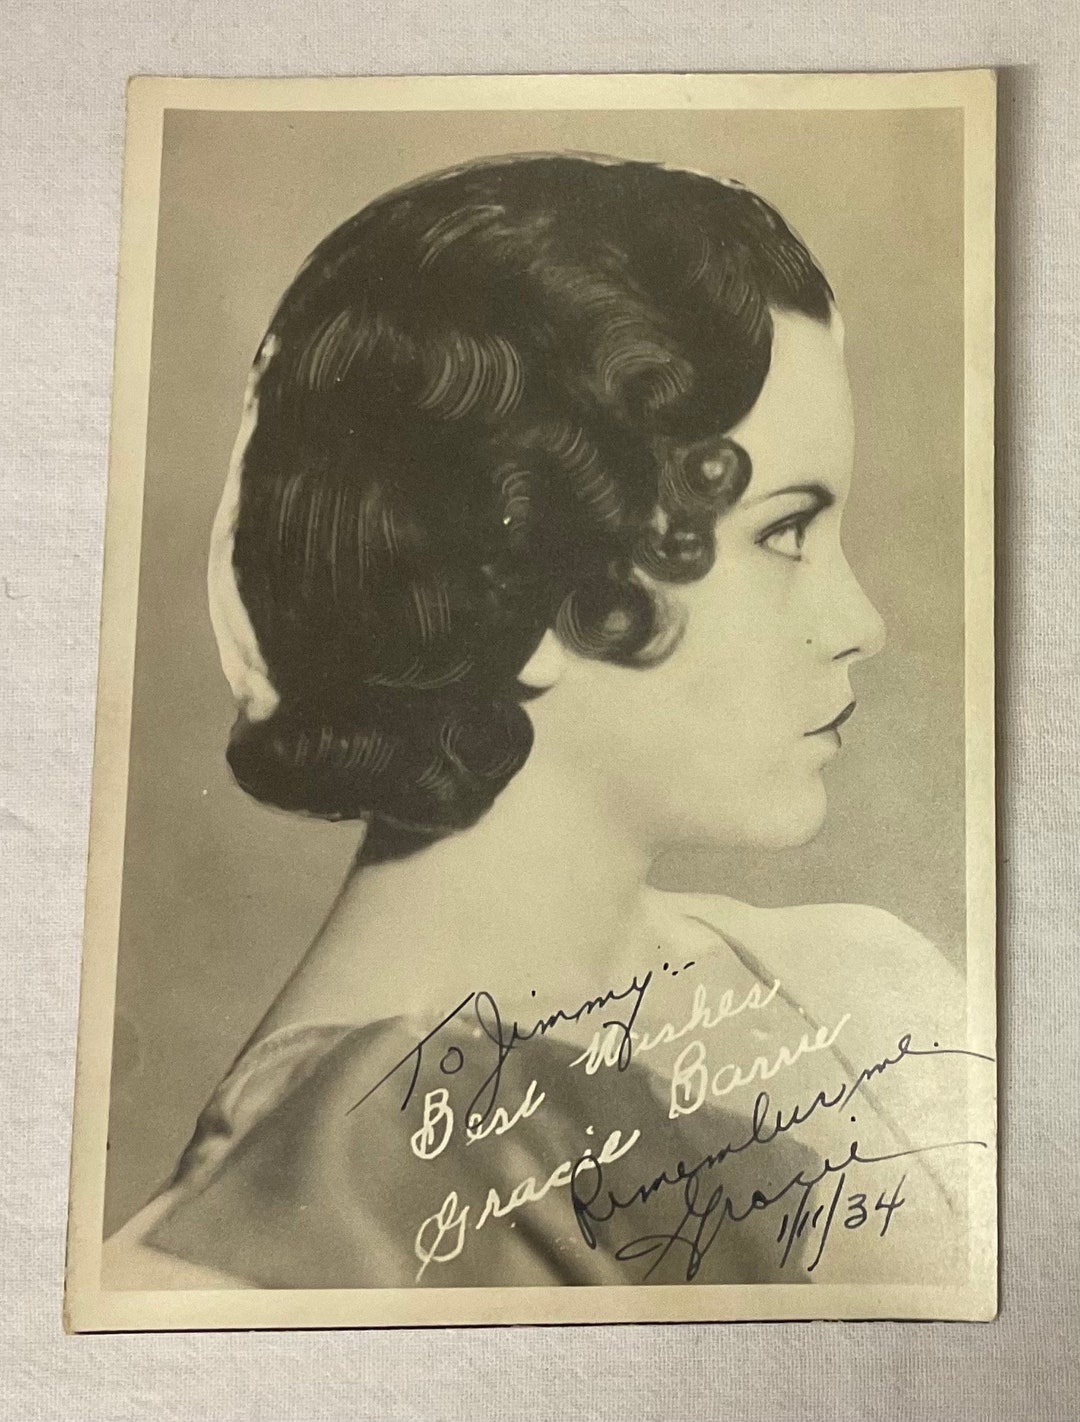 To Jimmy:-
Best Wishes
Gracie Barrie
Remember me.
Gracie
1/11/34